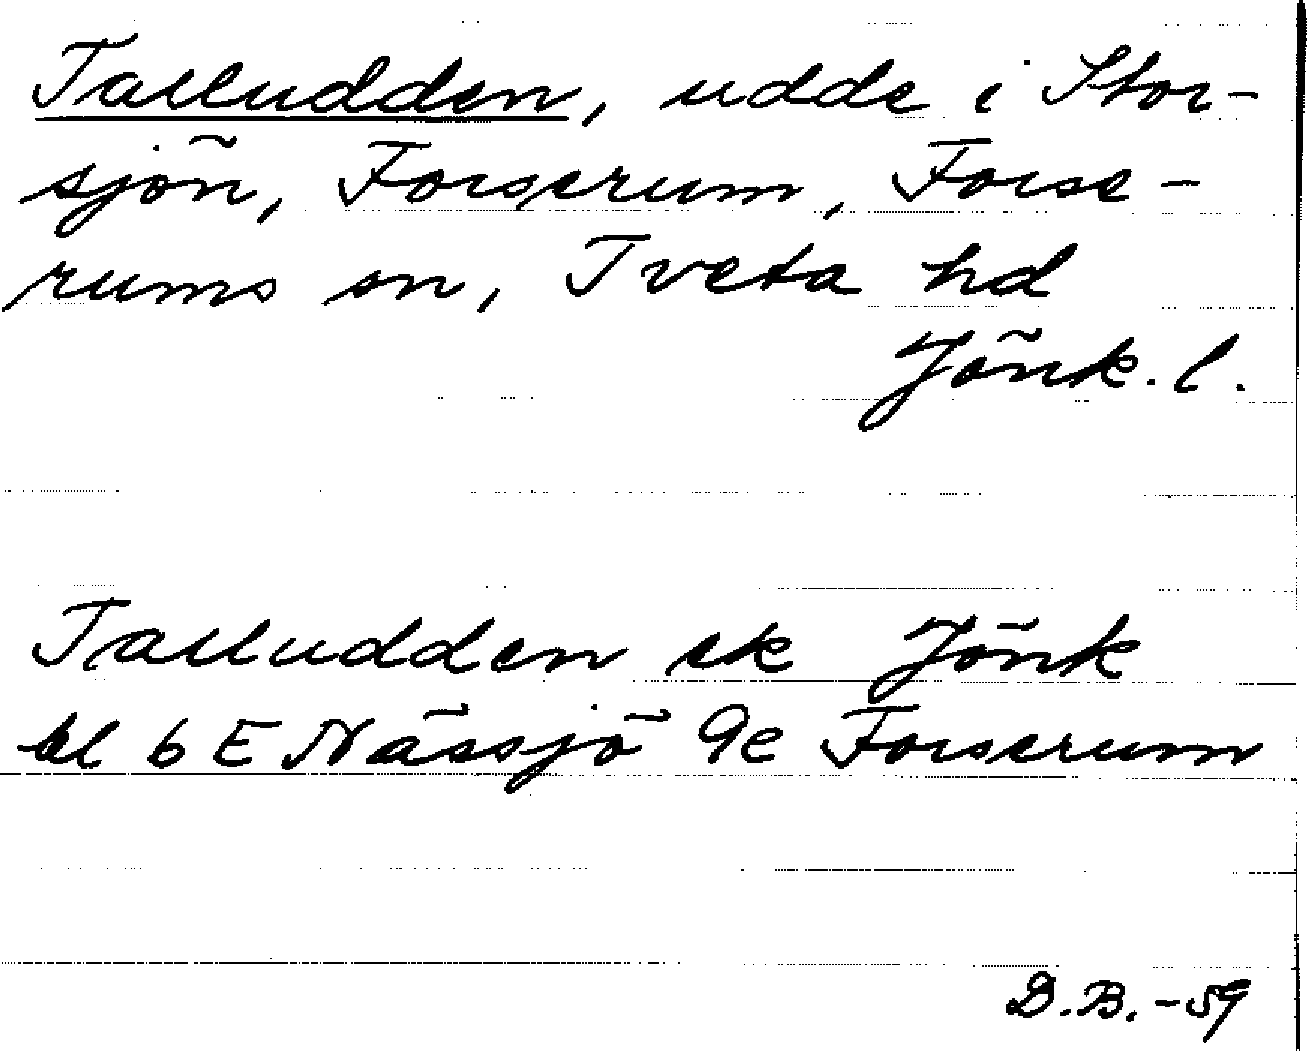 Talludden, udde i Stor-
sjön, Forserum, Forse-
rums sn, Tveta hd
Jönk. l.
Talludden ek Jönk
bl 6 E Nässjö 9e Forserum
D.B. -59